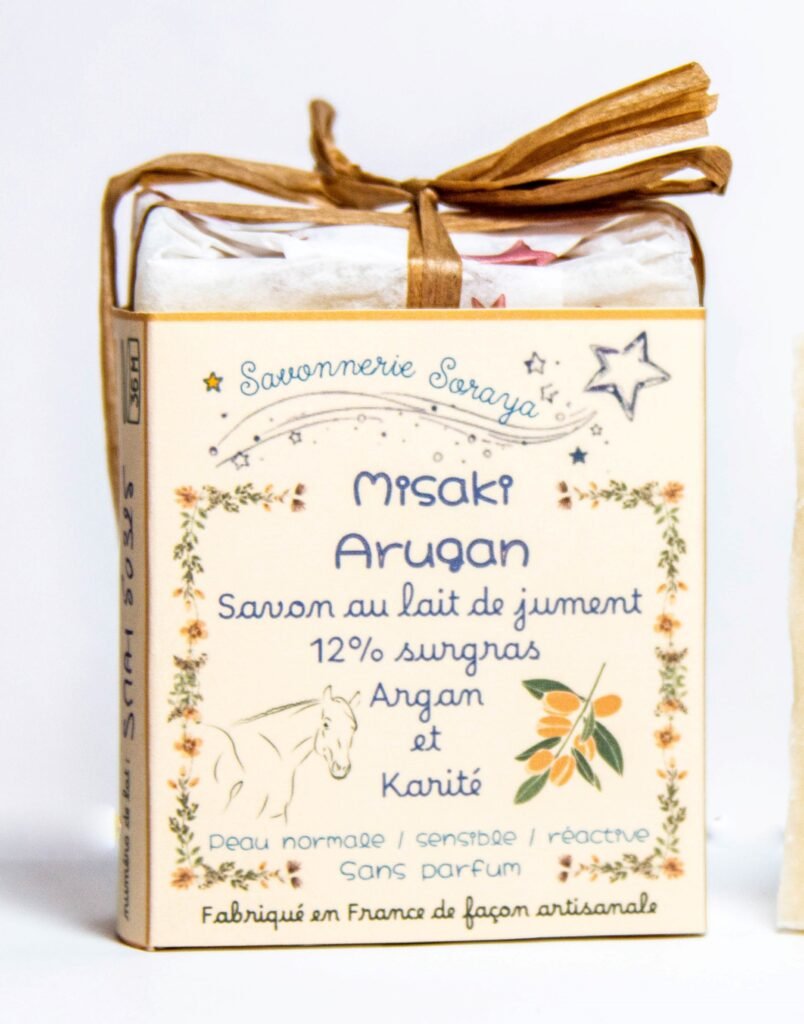 Savonnerie Soraya
Misaki
Arugan
Savon au lait de jument
12% surgras
Argan
et
Karité
Peau normale / sensible / réactive
Sans parfum
Fabriqué en France de façon artisanale
36M
numéro de lot :